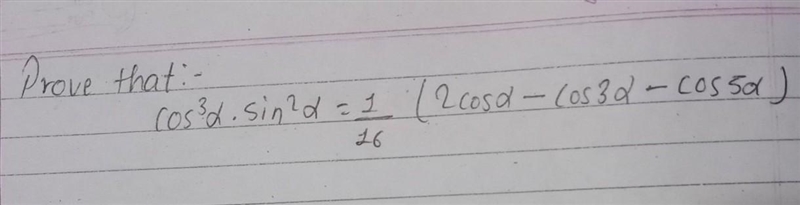 Prove that:-
cos³α · sin²α = 1/16 (2cosα - cos3α - cos5α)